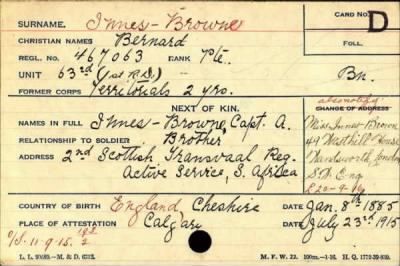 SURNAME. Innes-Browne CARD NO. D
CHRISTIAN NAMES Bernard FOLL.
REGL. NO. 467063 RANK Pte.
UNIT 63rd (1st R.D.) Bn.
FORMER CORPS Territorials 2 yrs.
NEXT OF KIN. also notify
CHANGE OF ADDRESS
NAMES IN FULL Innes-Browne, Capt. A. Miss Innes Brown
RELATIONSHIP TO SOLDIER Brother 49 Westhill House
ADDRESS 2nd Scottish Transvaal Reg. Wandsworth, London
Active Service, S. Africa Eng
COUNTRY OF BIRTH England Cheshire DATE Jan. 8th 1885
PLACE OF ATTESTATION Calgary DATE July 23rd 1915
O/S. 11-9-15.
M. F. W. 22.